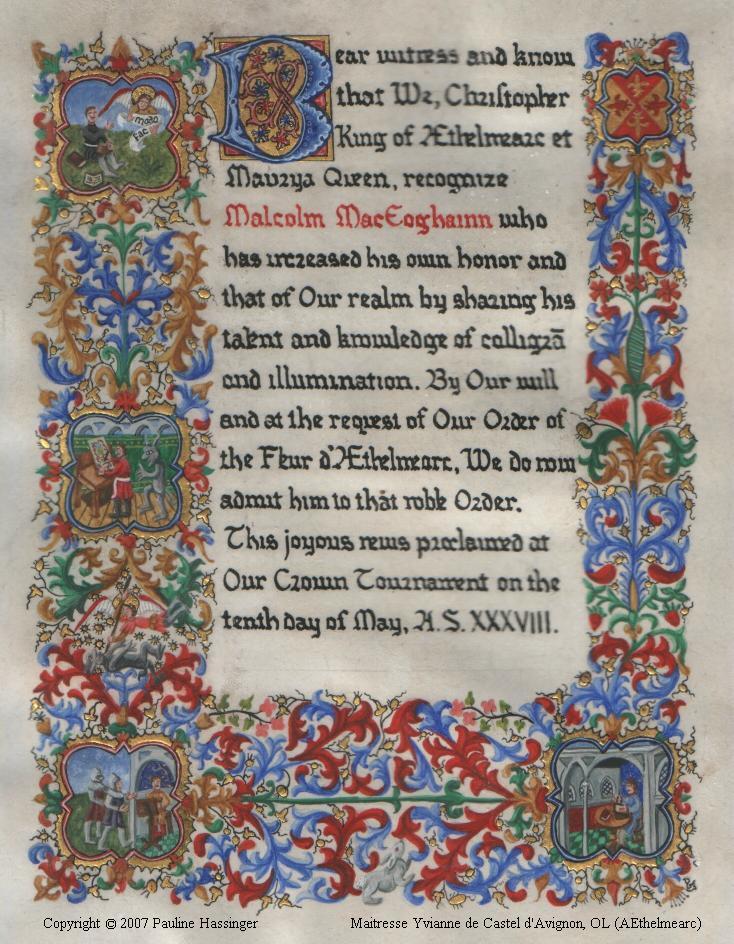 Bear witness and know
that We, Christopher
King of Æthelmearc et
Maurya Queen, recognize
Malcolm MacEoghainn who
has increased his own honor and
that of Our realm by sharing his
talent and knowledge of calligrā
and illumination. By Our will
and at the request of Our Order of
the Fleur d'Æthelmearc, We do now
admit him to thāt noble Order.
This joyous news proclaimed at
Our Crown Tournament on the
tenth day of May, A.S. XXXVIII.
modo
fac
Copyright © 2007 Pauline Hassinger
Maitresse Yvianne de Castel d'Avignon, OL (AEthelmearc)